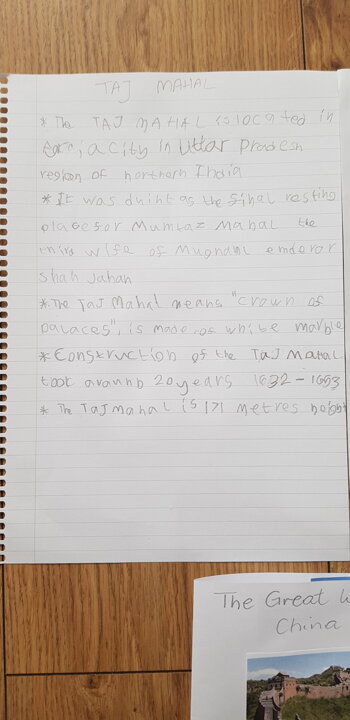 TAJ MAHAL
* The TAJ MAHAL is located in
Agra, a city in Uttar Pradesh
region of northern India
* It was duiht as the final resting
place for Mumtaz Mahal the
third wife of Mughanl emderor
Shah Jahan
* The Taj Mahal means "Crown of
Palaces", is made of white marble
* Construction of the Taj Mahal
took around 20 years 1632 - 1653
* The Taj mahal is 171 metres height
The Great
China